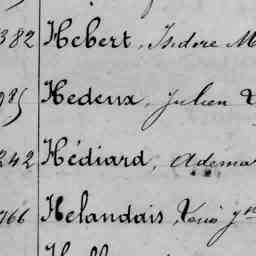 382 Hebert, Isidore M
Hedeux, Julien
242 Hédiard, Adema
766 Helandais, Louis